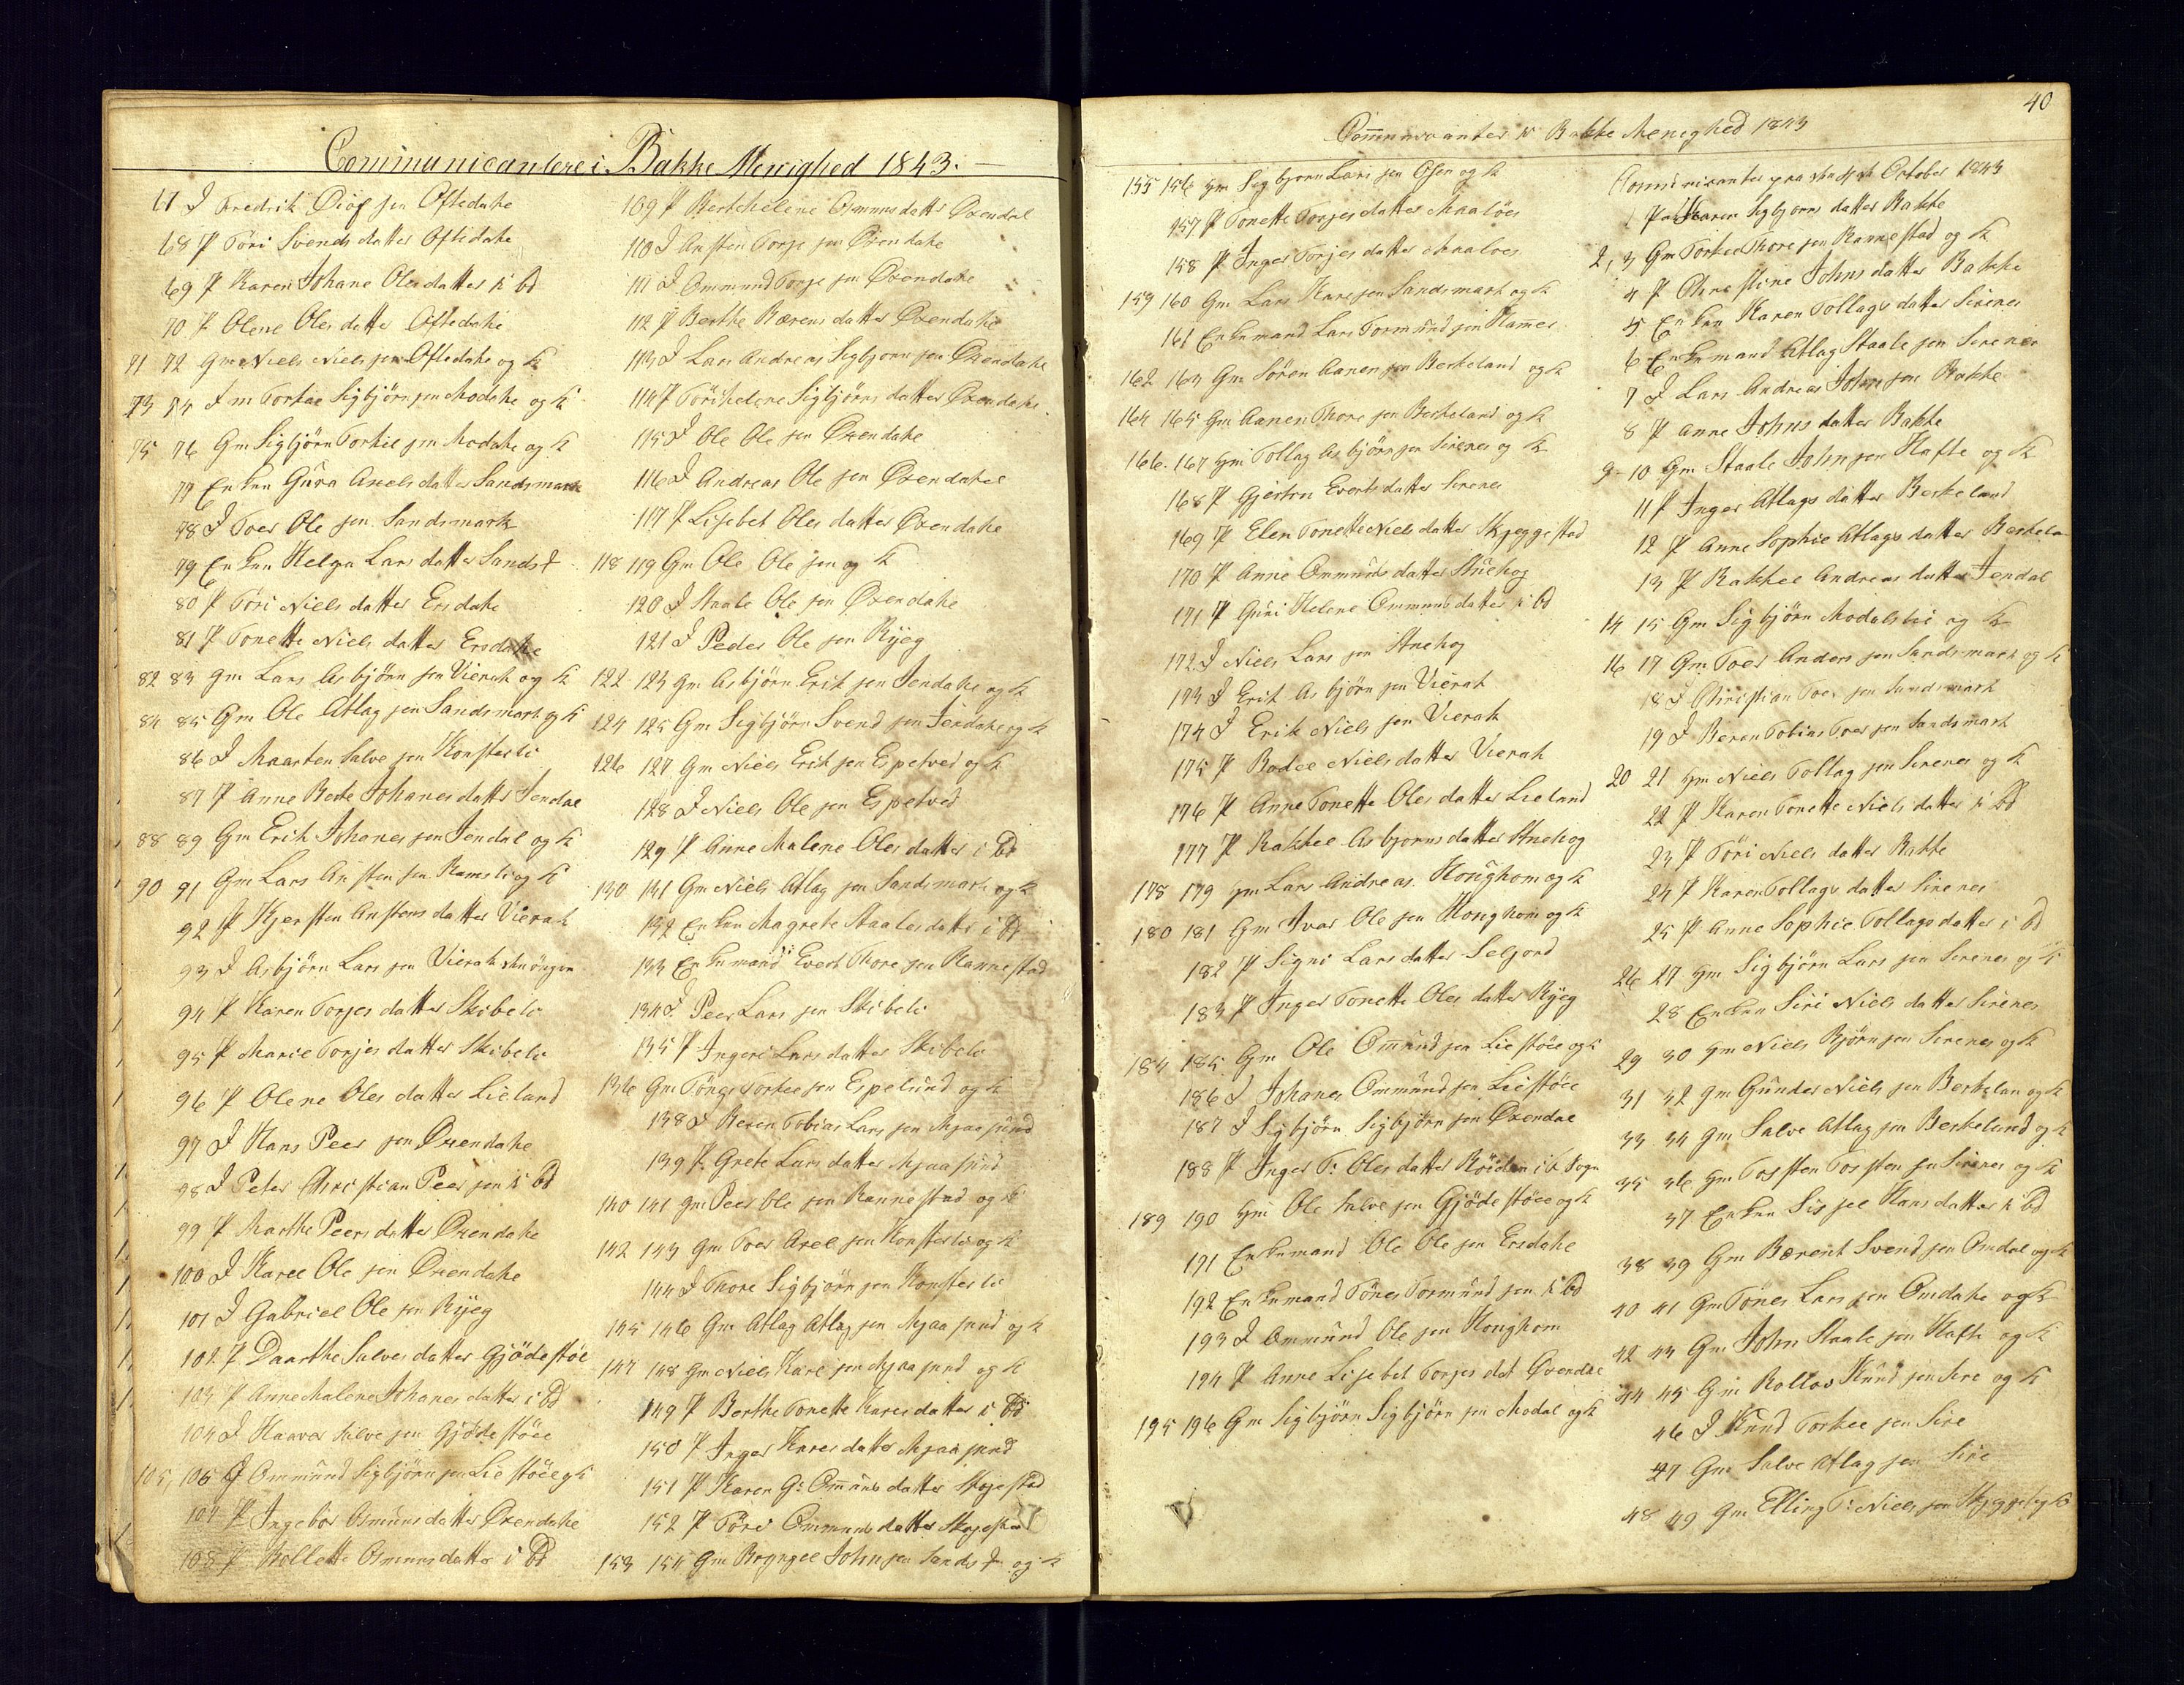 Communicantere i Bakke Menighed 1843.
67 J Fredrik Oløf sen Oftedahe
68 P Töri Svends datter Oftedahe
69 P Karen Johane Olesdatter i bd
70 P Olene Oles datter Oftedahe
71 72 Gm Niels Niels sen Oftedahe og K
73 74 Gm Torkee Sigbjörn sen Modahe og K
75 76 Gm Sigbjörn Torkil sen Modahe og K
77 Enken Gura Axels datter Sandsmark
78 J Toer Ole sen Sandsmark
79 Enken Helga Lars datter Sands
80 P Töri Niels datter Ersdahe
81 P Tonette Niels datter Ersdahe
82 83 Gm Lars Asbjörn sen Vierak og K
84 85 Gm Ole Atlag sen Sandsmark og K
86 J Maarten Salve sen Konsteli
87 P Anne Berte Johanes datter Jendal
88 89 Gm Erik Johanes sen Jendal og K
90 91 Gm Lars Austen sen Ramsli og K
92 P Kjersten Austens datter Vierak
93 J Asbjörn Lars sen Vierak
94 P Karen Torjes datter Skibeli
95 P Marie Torjes datter Skibeli
96 P Olene Oles datter Lieland
97 J Hans Peer sen Öxendahe
98 J Peter Christian Peer sen i bd
99 P Marthe Peers datter Öxendahe
100 J Karel Ole sen Öxendahe
101 J Gabriel Ole sen Ryeg
102 P Daarthe Salves datter Gjödestöl
103 P Anne Malene Johanes datter i bd
104 J Haaver Salve sen Gjödestöee
105, 106 G Ommund Sigbjörn sen Liestöee og K
107 P Ingebor Osmuns datter Öxendahe
108 P Mellette Omuns datter i bd
109 P Berthelene Omuns datter Öxendal
110 J Austen Torje sen Öxendahe
111 J Ommund Torje sen Öxendahe
112 P Berthe Bærens datter Öxendahe
113 J Lars Andreas Sigbjörn sen Öxendahe
114 P Töri helene Sigbjörns datter Öxendahe
115 J Ole Ole sen Öxendahe
116 J Andreas Ole sen Öxendahe
117 P Lisebet Oles datter Öxendahe
118 119 Gm Ole Ole sen og K
120 J Staale Ole sen Öxendahe
121 J Peder Ole sen Ryeg
122 123 Gm Asbjörn Erik sen Jendahe og K
124 125 Gm Sigbjörn Svend sen Jendahe og K
126 127 Gm Niels Erik sen Espetved og K
128 J Niels Ole sen Espetved
129 P Anne Malene Oles datter i bd
130 131 Gm Niels Atlag sen Sandsmark og K
132 Enken Magrete Staalesdatter i bd
133 Enkemand Evert Thore sen Rannestad
134 J Peer Lars sen Skibeli
135 P Ingeri Lars datter Skibeli
136 Gm Tönes Torkee sen Espelund og K
138 J Beren Tobias Lars sen Mjaasund
139 P Grete Lars datter Mjaasund
140 141 Gm Peer Ole sen Rannestad og K
142 143 Gm Toer Axel sen Konsteli og K
144 J Thore Sigbjörn sen Konsteli
145 146 Gm Atlag Atlag sen Mjaasund og K
147 148 Gm Niels Karl sen Mjaasund og K
149 P Berthe Tonette Kares datter i bd
150 P Inger Kares datter Mjaasund
151 P Karen G: Omuns datter Skejestad
152 P Töri Ommuns datter Skejestad
153 154 Gm Bryngel John sen Sands og K
40
Communicanter i Bakke Menighed 1843
155 156 Gm Sigbjorn Lars sen Osen og K
157 P Tonette Torjes datter Maaloes
158 P Inger Torjes datter Maaloes
159 160 Gm Lars Kare sen Sandsmark og K
161 Enkemand Lars Tormund sen Hamer
162 163 Gm Sören Aanen sen Berkeland og K
164 165 Gm Aanen Thore sen Berkeland og K
166. 167 Gm Tollag Asbjörn sen Sirenes og K
168 P Gjertru Everts datter Sirenes
169 P Elen Tonette Niels datter Skjeggestad
170 P Anne Ommunds datter Stuehog
171 P Guri Helene Ommunds datter i bd
172 J Niels Lars sen Stuehog
173 J Erik Asbjörn sen Vierak
174 J Erik Niels sen Vierak
175 P Bodel Niels datter Vierak
176 P Anne Tonette Oles datter Lieland
177 P Rakkel Asbjorns datter Stuehog
178 179 Gm Lars Andreas Houghom og K
180 181 Gm Ivar Ole sen Houghom og K
182 P Signi Lars datter Seljord
183 P Inger Tonette Oles datter Ryeg
184 185 Gm Ole Omund sen Liestöee og K
186 J Johanes Ommund sen Liestöee
187 J Sigbjörn Sigbjörn sen Öxendal
188 P Inger T: Oles datter Röiden i Sogn
189 190 Gm Ole Salve sen Gjödestöee og K
191 Enkemand Ole Ole sen Ersdahe
192 Enkemand Tönes Tormund sen i bd
193 J Ommund Ole sen Houghom
194 P Anne Lisebet Torjes dat Öxendal
195 196 Gm Sigbjörn Sigbjörn sen Modal og K
Communicanter October 1843
1 P Karen Sigbjorns datter Bakke
2, 3 Gm Torkel Thore sen Rannestad og K
4 P Christine Johns datter Bakke
5 Enken Karen Tollags datter Sirenes
6 Enkemand Atlag Staale sen Sirenes
7 J Lars Andreas John sen Bakke
8 P Anne Johns datter Bakke
9 10 Gm Staale John sen Hafte og K
11 P Inger Atlags datter Berkeland
12 P Anne Sophie Atlags datter Berkela
13 P Rakkel Andreas datter Jendal
14 15 Gm Sigbjörn Modalsli og K
16 17 Gm Toer Anders sen Sandsmark og K
18 J Christian Toer sen Sandsmark
19 J Beren Tobias Toer sen Sandsmark
20 21 Gm Niels Tollag sen Sirenes og K
22 P Karen Tonette Niels datter i bd
23 P Töri Niels datter Bakke
24 P Karen Tollags datter Sirenes
25 P Anne Sophie Tollags datter i bd
26 27 Gm Sigbjörn Lars sen Sirenes og K
28 Enken Siri Niels datter Sirenes
29 30 Gm Niels Björn sen Sirenes og K
31 32 Gm Gunder Niels sen Berkelan og K
33 34 Gm Salve Atlag sen Berkeland og K
35 36 Gm Tosten Tosten sen Sirenes og K
37 Enken Sissel Hans datter i bd
38 39 Gm Bærent Svend sen Omdal og K
40 41 Gm Tönes Lars sen Omdahe og K
42 43 Gm John Staale sen Hafte og K
44 45 Gm Rollov Knud sen Sire og K
46 J Knud Torkel sen Sire
47 Gm Salve Atlag sen Sire
48 49 Gm Elling T: Niels sen og K